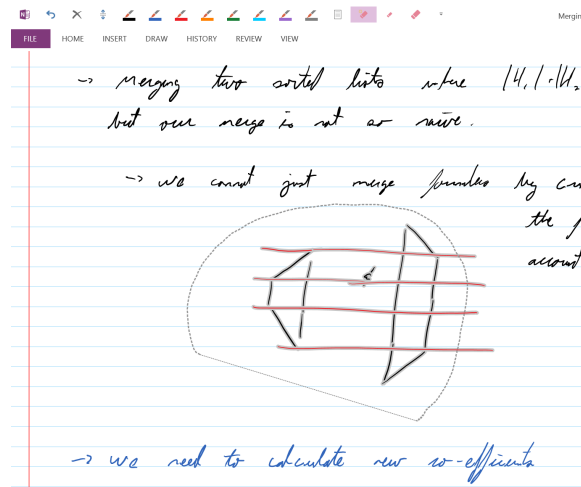 Mergin
FILE HOME INSERT DRAW HISTORY REVIEW VIEW
-> Merging two sorted lists where |H₁|·|H₂
but our merge is not so naive.
-> we cannot just merge by
the
account
-> we need to calculate new co-efficients